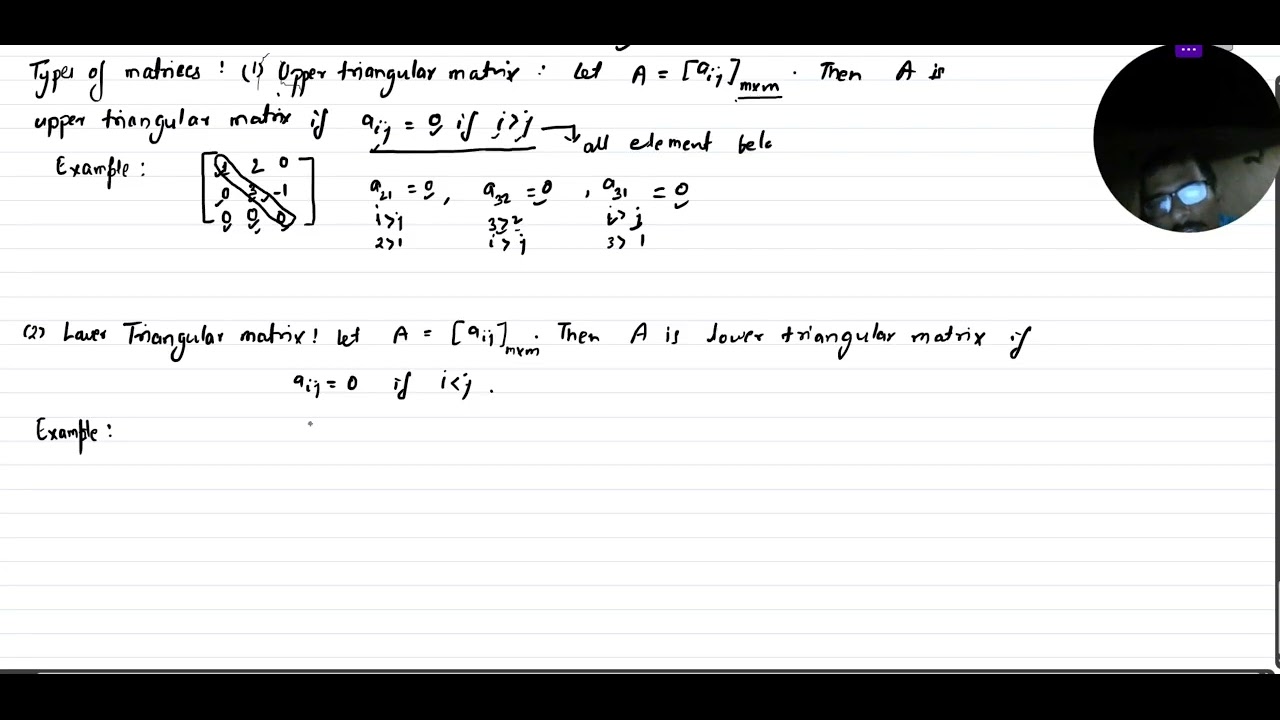 Types of matrices : (1) Upper triangular matrix : Let A = [aij]m×m . Then A is
upper triangular matrix if aij = 0 if i>j → all element belo
Example : [ 1 2 0
0 3 -1
0 0 0 ]
a21 = 0 , a32 = 0 , a31 = 0
i>j 3>2 i>j
2>1 i>j 3>1
(2) Lower Triangular matrix : Let A = [aij]m×m . Then A is lower triangular matrix if
aij = 0 if i<j .
Example :